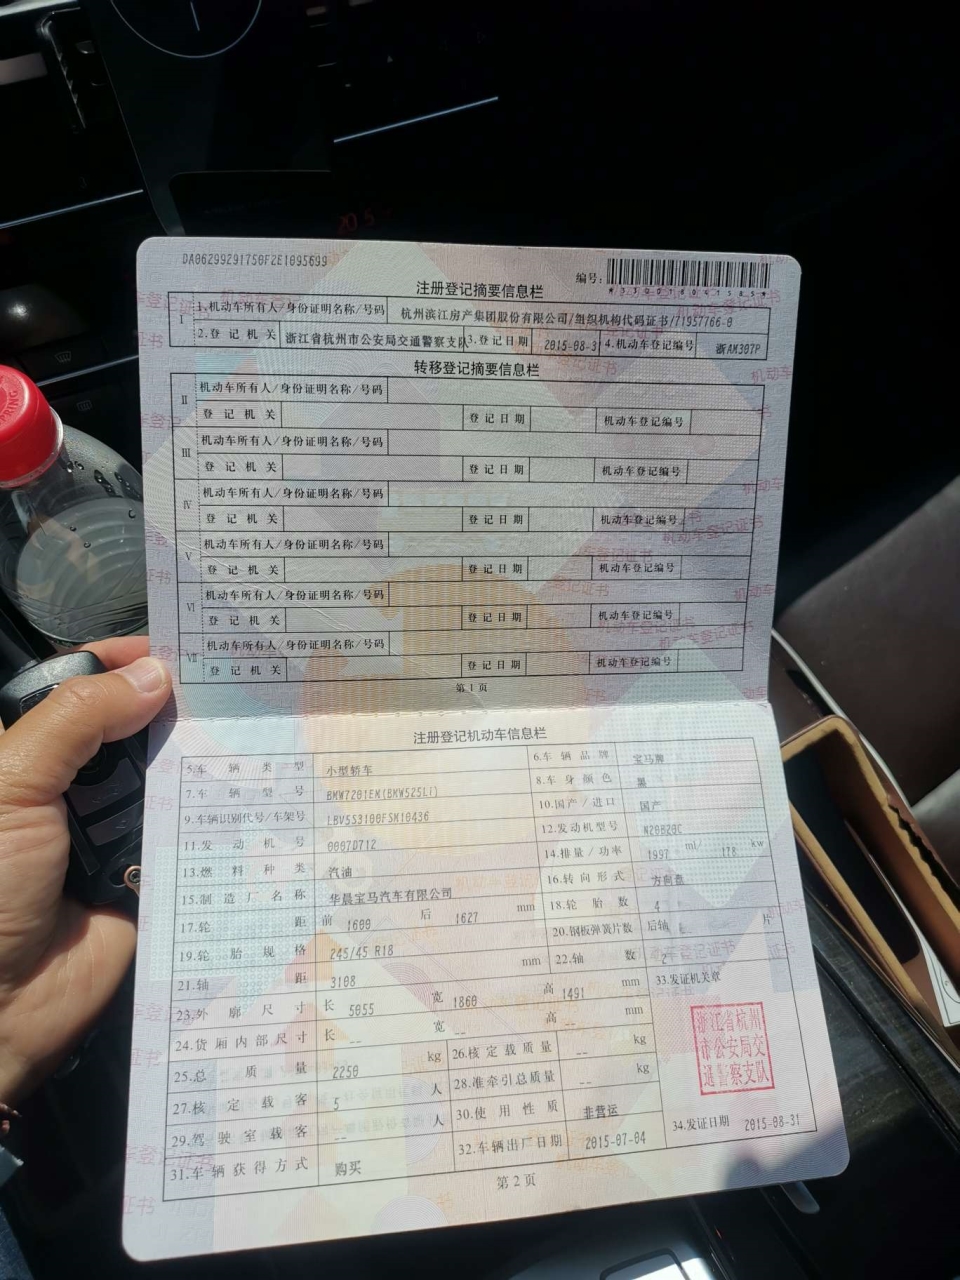 DA06299291750F2E1095699
编号:
注册登记摘要信息栏
I 1.机动车所有人/身份证明名称/号码 杭州滨江房产集团股份有限公司/组织机构代码证书/71957766-0
2.登记机关 浙江省杭州市公安局交通警察支队 3.登记日期 2015-08-31 4.机动车登记编号 浙AM307P
转移登记摘要信息栏
II 机动车所有人/身份证明名称/号码
登记机关 登记日期 机动车登记编号
III 机动车所有人/身份证明名称/号码
登记机关 登记日期 机动车登记编号
IV 机动车所有人/身份证明名称/号码
登记机关 登记日期 机动车登记编号
V 机动车所有人/身份证明名称/号码
登记机关 登记日期 机动车登记编号
VI 机动车所有人/身份证明名称/号码
登记机关 登记日期 机动车登记编号
VII 机动车所有人/身份证明名称/号码
登记机关 登记日期 机动车登记编号
第1页
注册登记机动车信息栏
5.车辆类型 小型轿车 6.车辆品牌 宝马牌
7.车辆型号 BMW7201EM(BMW525Li) 8.车身颜色 黑
9.车辆识别代号/车架号 LBV5S3100FSM10436 10.国产/进口 国产
11.发动机号 0007D712 12.发动机型号 N20B20C
13.燃料种类 汽油 14.排量/功率 1997 ml/ 178 kw
15.制造厂名称 华晨宝马汽车有限公司 16.转向形式 方向盘
17.轮距 前 1609 后 1627 mm 18.轮胎数 4
19.轮胎规格 245/45 R18 20.钢板弹簧片数 后轴 片
21.轴距 3108 mm 22.轴数 2
23.外廓尺寸 长 5055 宽 1860 高 1491 mm 33.发证机关章
24.货厢内部尺寸 长 -- 宽 -- 高 -- mm
浙江省杭州
市公安局交
通警察支队
25.总质量 2250 kg 26.核定载质量 -- kg
27.核定载客 5 人 28.准牵引总质量 -- kg
29.驾驶室载客 -- 人 30.使用性质 非营运
31.车辆获得方式 购买 32.车辆出厂日期 2015-07-04 34.发证日期 2015-08-31
第2页